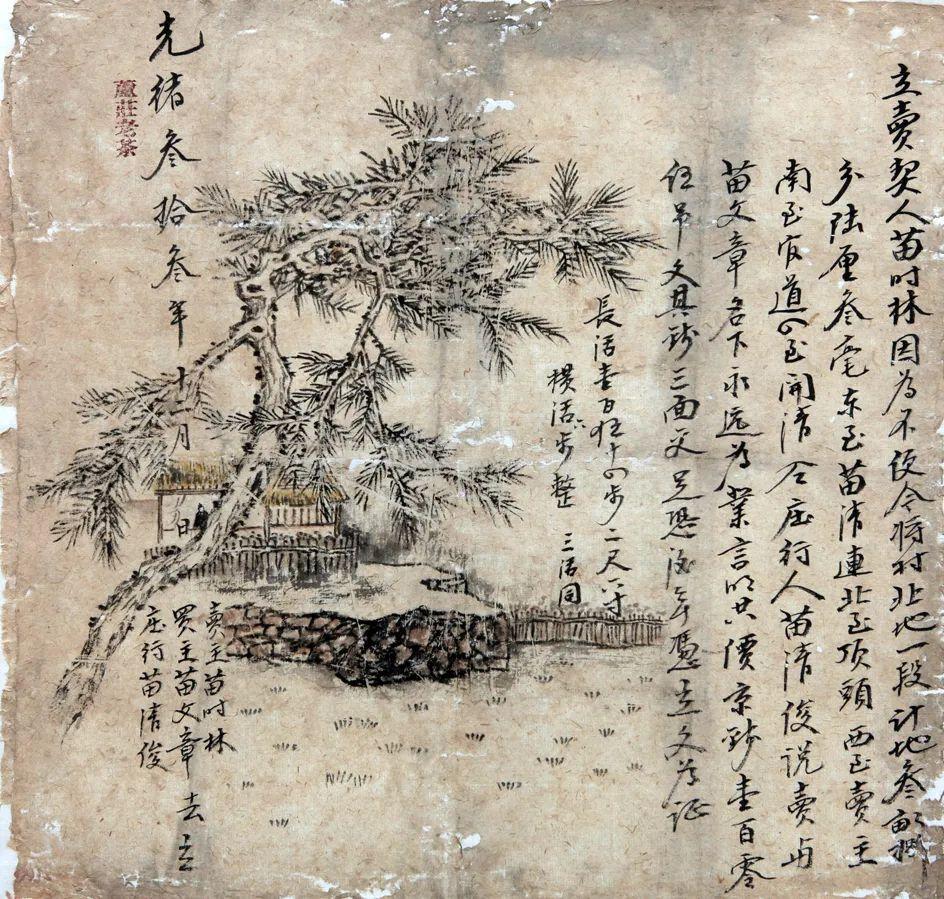 立賣契人苗时林因为不便今将村北地一段计地叁畝捌
分陆厘叁毫东至苗清連北至顶頭西至賣主
南至官道四至開清今庄行人苗清俊说賣与
苗文章名下永远为業言明共價京钞壹百零
伍吊文其钞三面交足恐後無憑立文为证
長活壹百伍十四步二尺八寸
横活六步整 三活同
光绪叁拾叁年十二月 日
賣主苗时林
買主苗文章 去立
庄行苗清俊
蘆莊老茶